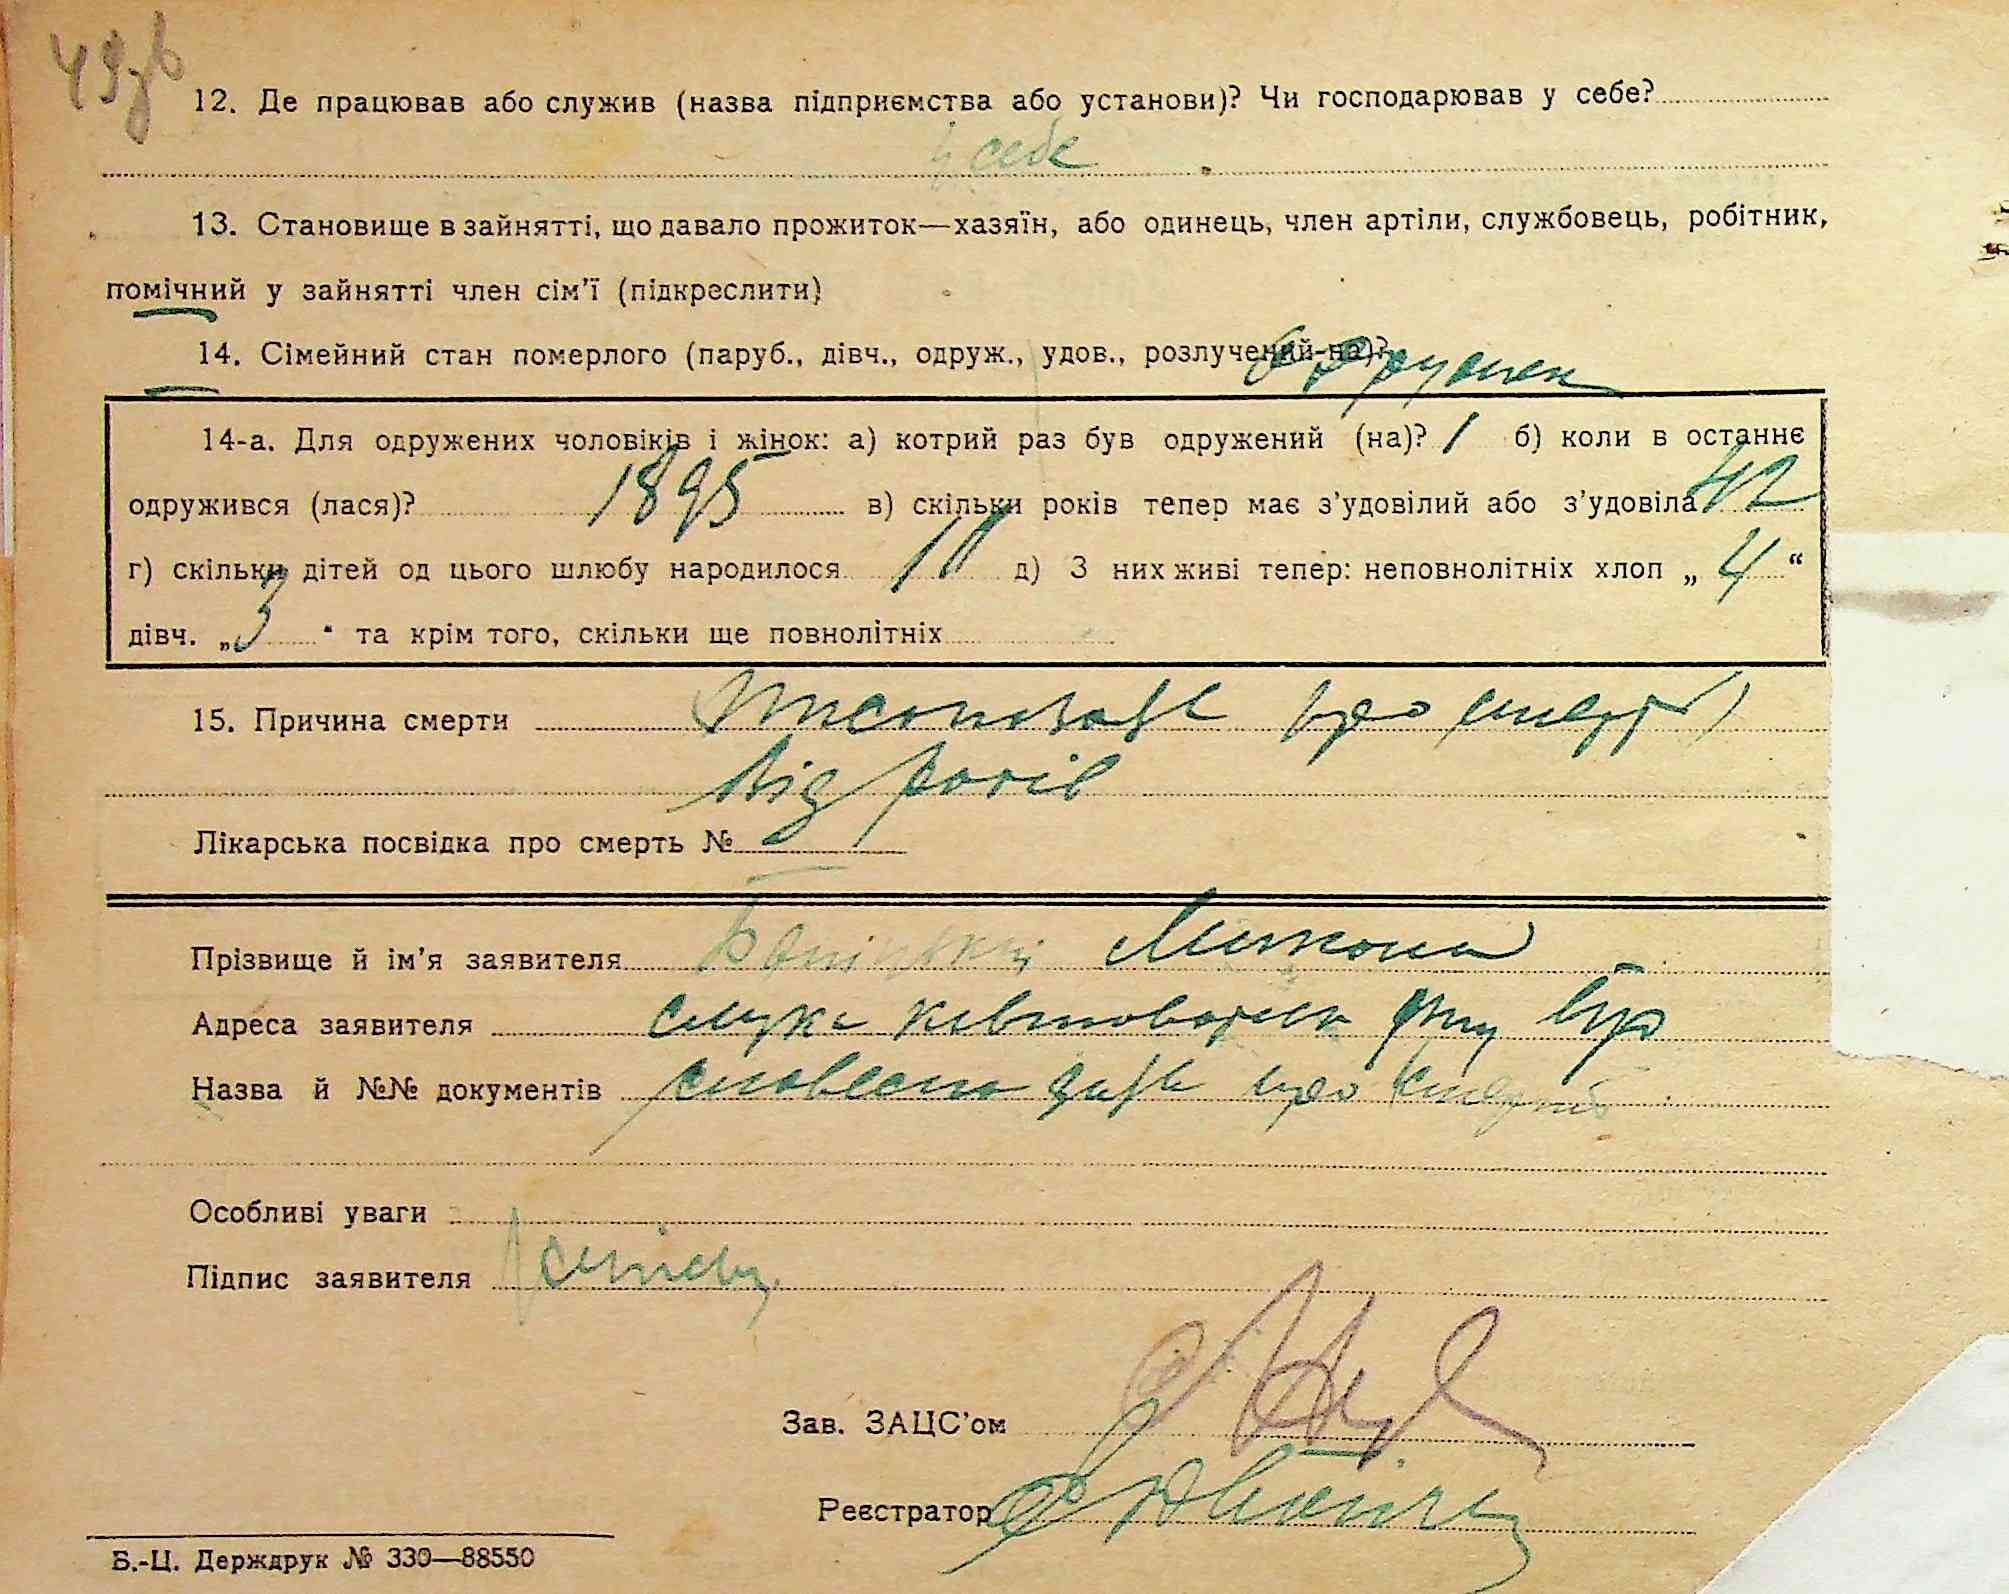 49зв
12. Де працював або служив (назва підприємства або установи)? Чи господарював у себе?
у себе
13. Становище в зайнятті, що давало прожиток—хазяїн, або одинець, член артіли, службовець, робітник,
помічний у зайнятті член сім'ї (підкреслити)
14. Сімейний стан померлого (паруб., дівч., одруж., удов., розлучений-на)?
14-а. Для одружених чоловіків і жінок: а) котрий раз був одружений (на)? 1 б) коли в останнє
одружився (лася)? 1895 в) скільки років тепер має з'удовілий або з'удовіла 42
г) скільки дітей од цього шлюбу народилося 10 д) З них живі тепер: неповнолітніх хлоп „ 4 “
дівч. „ 3 “ та крім того, скільки ще повнолітніх
15. Причина смерти про смерть
від років
Лікарська посвідка про смерть №
Прізвище й ім'я заявителя
Адреса заявителя
Назва й №№ документів словесна про смерть
Особливі уваги
Підпис заявителя
Зав. ЗАЦС'ом
Реєстратор
Б.-Ц. Держдрук № 330—88550